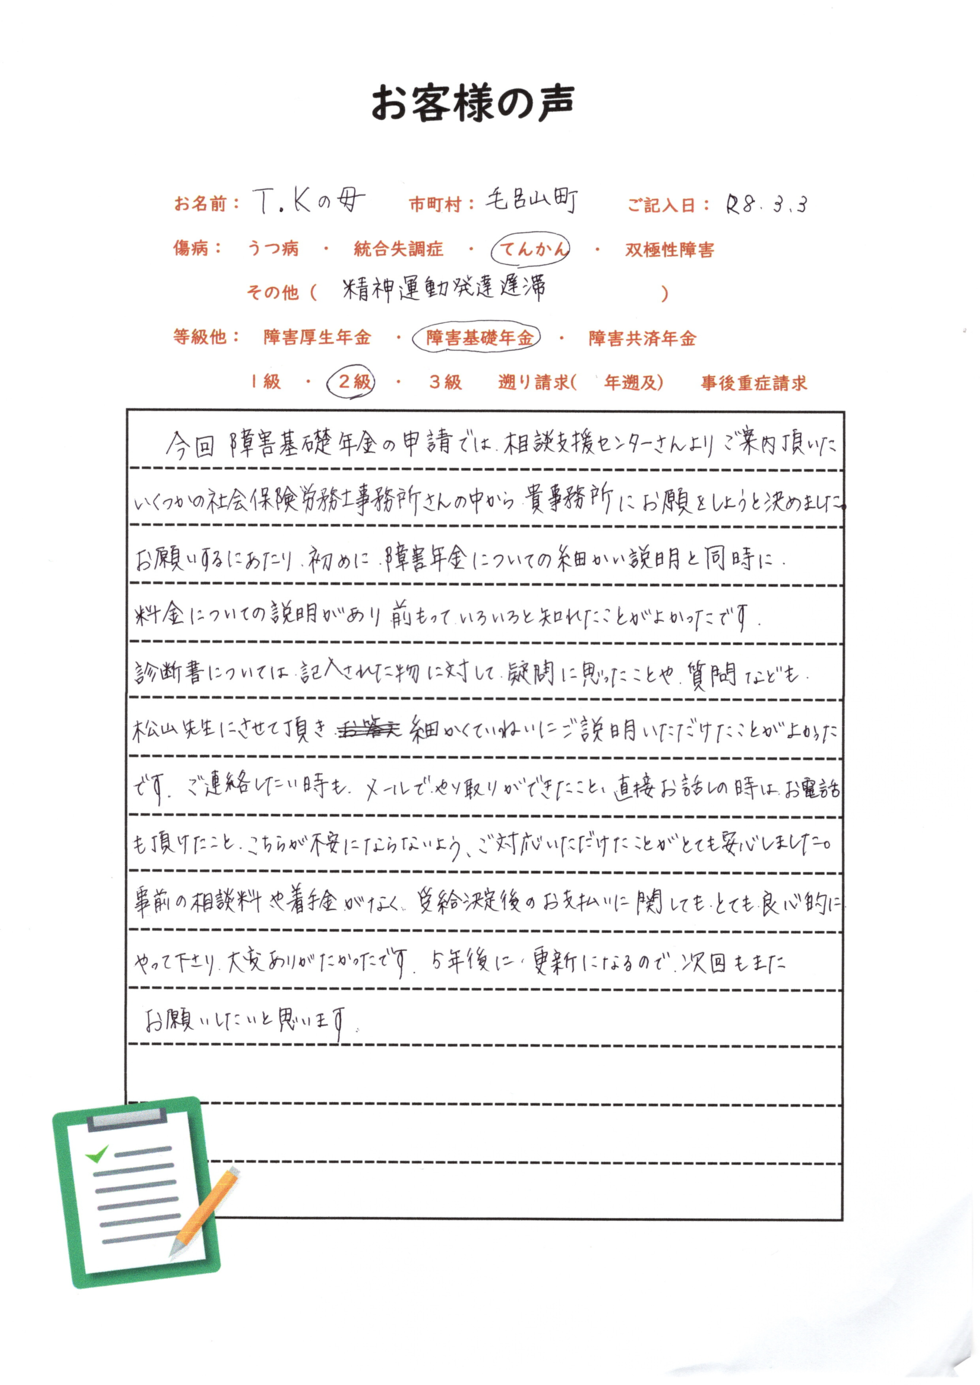 お客様の声
お名前： T.Kの母 市町村： 毛呂山町 ご記入日： R8.3.3
傷病： うつ病 ・ 統合失調症 ・ てんかん ・ 双極性障害
その他（ 精神運動発達遅滞 ）
等級他： 障害厚生年金 ・ 障害基礎年金 ・ 障害共済年金
1級 ・ 2級 ・ 3級 遡り請求( 年遡及) 事後重症請求
今回障害基礎年金の申請では、相談支援センターさんよりご案内頂いた
いくつかの社会保険労務士事務所さんの中から貴事務所にお願をしようと決めました。
お願いするにあたり、初めに、障害年金についての細かい説明と同時に、
料金についての説明があり前もっていろいろと知れたことがよかったです。
診断書については、記入された物に対して、疑問に思ったことや、質問なども、
松山先生にさせて頂き、細かくていねいにご説明いただけたことがよかった
です。ご連絡したい時も、メールでやり取りができたこと、直接お話しの時は、お電話
も頂けたこと、こちらが不安にならないよう、ご対応いただけたことがとても安心しました。
事前の相談料や着手金がなく、受給決定後のお支払いに関しても、とても良心的に
やって下さり、大変ありがたかったです。5年後に、更新になるので、次回もまた
お願いしたいと思います。